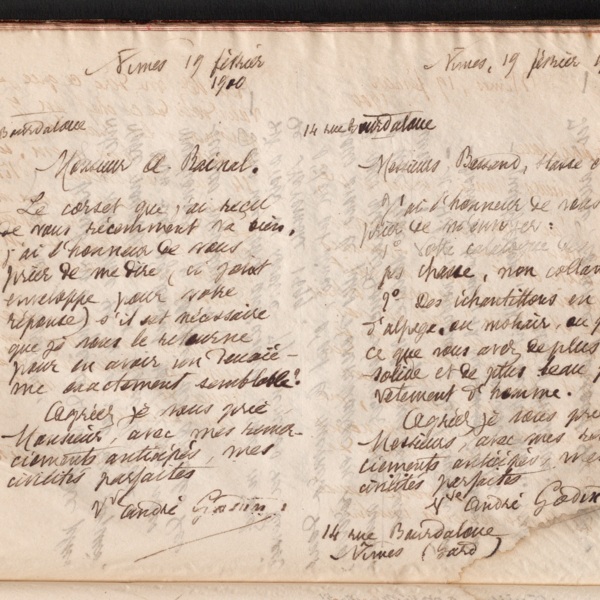 Nimes 19 février
1900
Bourdaloue
Monsieur de Rainal.
Le corset que j'ai reçu
de vous récemment va bien,
j'ai l'honneur de vous
prier de me dire, (ci joint
enveloppe pour votre
réponse) s'il est nécessaire
que je vous le retourne
pour en avoir un
me exactement semblable?
Agréer je vous prie
Monsieur, avec mes remer-
ciements anticipés, mes
civilités parfaites
Vve André Godin.
Nimes, 19 février 1
14 rue Bourdaloue
Messieurs
J'ai l'honneur de vous
prier de m'envoyer:
1° votre catalogue
pr chasse, non collan
2° Des échantillons en
d'alpaga, ou mohair, ou
ce que vous avez de plus
solide et de plus beau p
vêtement d'homme.
Agréer je vous pri
Messieurs, avec mes re
ciements anticipés me
civilités parfaites
Vve André Godin
14 rue Bourdaloue
Nimes (Gard)